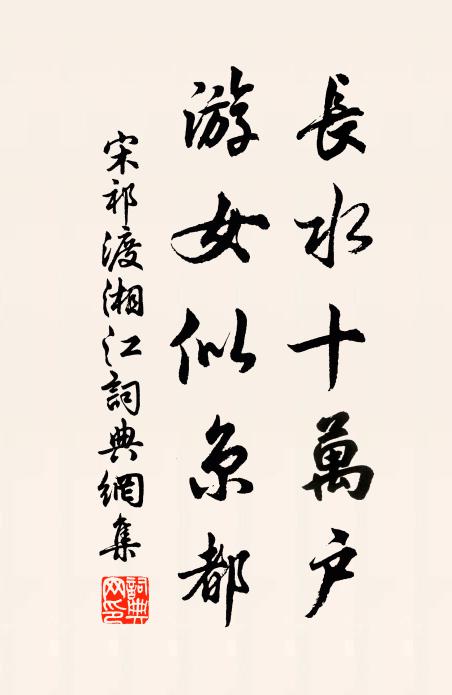 長水十萬户
游女似京都
宋祁渡湘江詞典網集
詞典網印